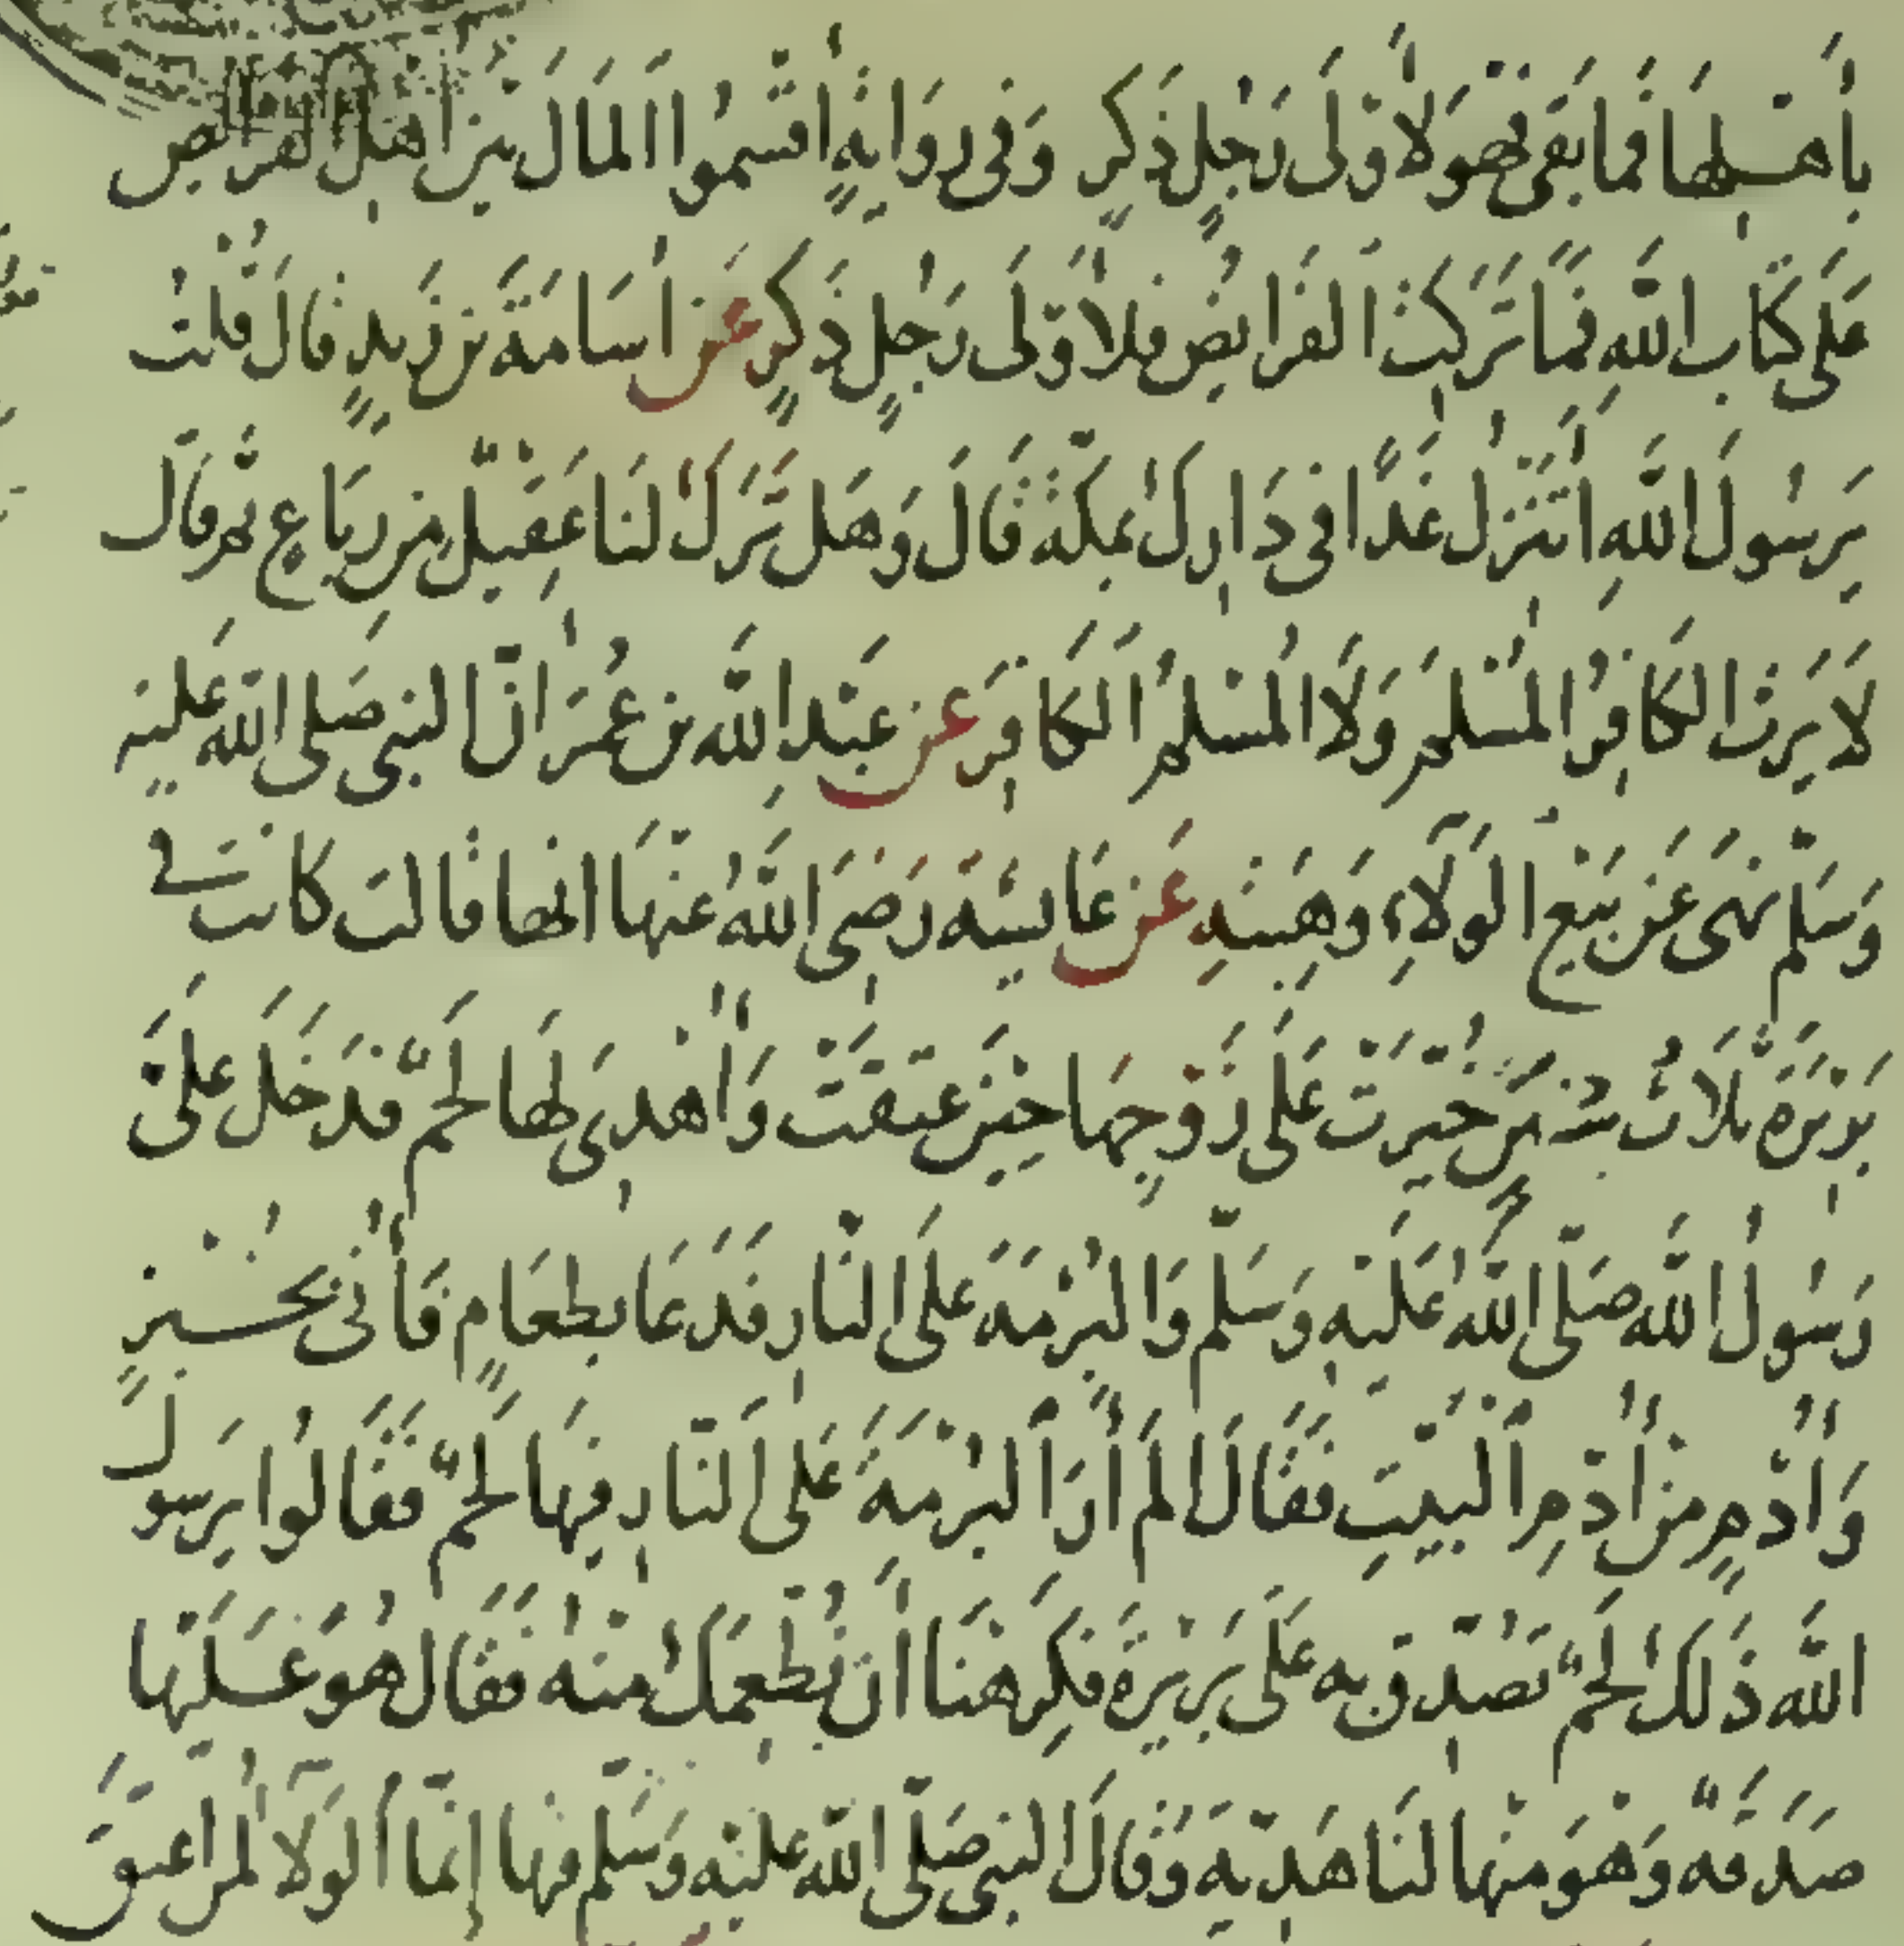 بِأَهْلِهَا فَمَا بَقِيَ فَهُوَ لِأَوْلَى رَجُلٍ ذَكَرٍ وَفِي رِوَايَةٍ أَقْسِمُوا الْمَالَ بَيْنَ أَهْلِ الْفَرَائِضِ
عَلَى كِتَابِ اللَّهِ فَمَا تَرَكَتِ الْفَرَايِضُ فَلِأَوْلَى رَجُلٍ ذَكَرٍ عَنْ أُسَامَةَ بْنِ زَيْدٍ قَالَ قُلْتُ
يَرَسُولَ اللَّهِ أَتَنْزِلُ غَدًا فِي دَارِكَ بِمَكَّةَ قَالَ وَهَلْ تَرَكَ لَنَا عَقِيلٌ مِنْ رِبَاعٍ ثُمَّ قَالَ
لَا يَرِثُ الْكَافِرُ الْمُسْلِمَ وَلَا الْمُسْلِمُ الْكَافِرَ عَنْ عَبْدِ اللَّهِ بْنِ عُمَرَ أَنَّ النَّبِيَّ صَلَّى اللَّهُ عَلَيْهِ
وَسَلَّمَ نَهَى عَنْ بَيْعِ الْوَلَاءِ وَهِبَتِهِ عَنْ عَايِشَةَ رَضِيَ اللَّهُ عَنْهَا انها قَالَت كَانَت في
بَرِيرَةَ ثَلَاثُ سُنَنٍ خُيِّرَتْ عَلَى زَوْجِهَا حِينَ عَتَقَتْ وَأُهْدِيَ لَهَا لَحْمٌ فَدَخَلَ عَلَيَّ
رَسُولُ اللَّهِ صَلَّى اللَّهُ عَلَيْهِ وَسَلَّمَ وَالْبُرْمَةُ عَلَى النَّارِ فَدَعَا بِطَعَامٍ فَأُتِيَ بِخُبْزٍ
وَأُدْمٍ مِنْ أُدْمِ الْبَيْتِ فَقَالَ أَلَمْ أَرَ الْبُرْمَةَ عَلَى النَّارِ فِيهَا لَحْمٌ فَقَالُوا يَرَسُولَ
اللَّهِ ذَلِكَ لَحْمٌ تُصُدِّقَ بِهِ عَلَى بَرِيرَةَ فَكَرِهْنَا أَنْ نُطْعِمَكَ مِنْهُ فَقَالَ هُوَ عَلَيْهَا
صَدَقَةٌ وَهْوَ مِنْهَا لَنَا هَدِيَّةٌ وَقَالَ النَّبِيُّ صَلَّى اللَّهُ عَلَيْهِ وَسَلَّمَ فِيهَا إِنَّمَا الْوَلَاءُ لِمَنْ اعْتَقَ